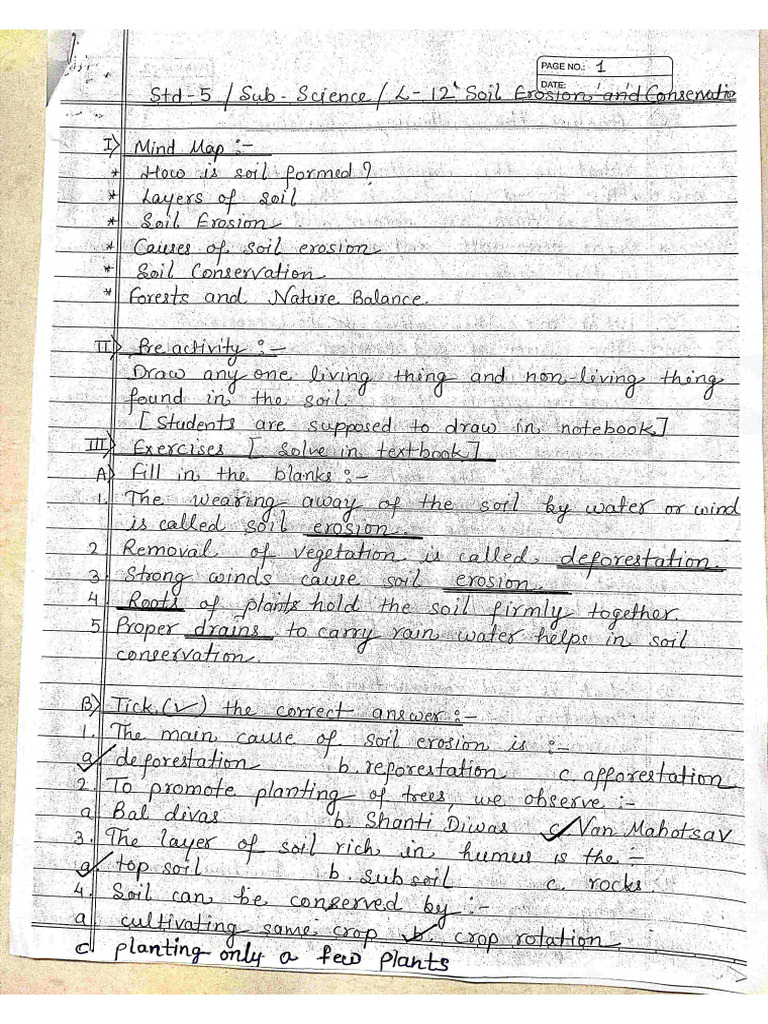 PAGE NO.: 1
DATE:
Std-5 / Sub-Science / L-12 Soil Erosion and Conservatio
I) Mind Map :-
* How is soil formed?
* Layers of soil
* Soil Erosion
* Causes of soil erosion
* Soil Conservation
* Forests and Nature Balance.
II) Pre activity :-
Draw any one living thing and non-living thing
found in the soil.
[Students are supposed to draw in notebook]
III) Exercises [Solve in textbook]
A) Fill in the blanks :-
1. The wearing away of the soil by water or wind
is called soil erosion.
2 Removal of vegetation is called deforestation.
3. Strong winds cause soil erosion.
4 Roots of plants hold the soil firmly together.
5. Proper drains to carry rain water helps in soil
conservation.
B) Tick (✓) the correct answer :-
1. The main cause of soil erosion is :-
a. ✓ deforestation b. reforestation c. afforestation
2. To promote planting of trees, we observe :-
a Bal divas b. Shanti Diwas c. ✓ Van Mahotsav
3. The layer of soil rich in humus is the :-
a. ✓ top soil b. sub soil c. rocks.
4. Soil can be conserved by :-
a cultivating same crop ✓ b. crop rotation
c planting only a few plants